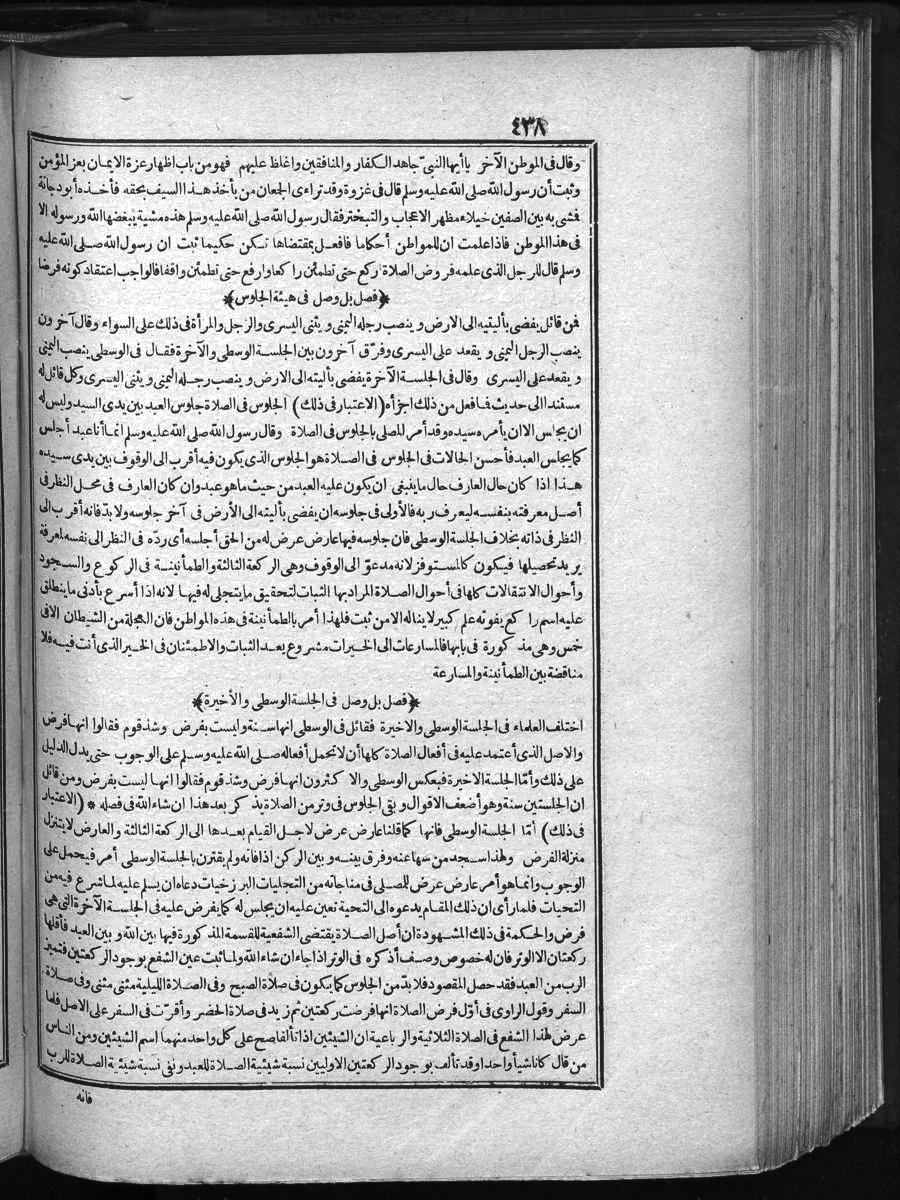 ٤٣٨
وقال فى الموطن الآخر ياأيها النبىّ جاهد الكفار والمنافقين واغلظ عليهم فهو من باب اظهار عزة الايمان بعز المؤمن
وثبت أن رسول الله صلى الله عليه وسلم قال فى غزوة وقد تراءى الجمعان من يأخذ هذا السيف بحقه فأخذه أبودجانة
فشى به بين الصفين خيلاء مظهر الاعجاب والتبختر فقال رسول الله صلى الله عليه وسلم هذه مشية يبغضها الله ورسوله الا
فى هذا الموطن فاذا علمت ان للمواطن أحكاما فافعل بمقتضاها تكن حكيما ثبت ان رسول الله صلى الله عليه
وسلم قال للرجل الذى علمه فروض الصلاة اركع حتى تطمئن راكعا وارفع حتى تطمئن واقفا فالواجب اعتقاد كونه فرضا
﴿فصل بل وصل فى هيئة الجلوس﴾
فمن قائل يفضى بأليتيه الى الارض وينصب رجله اليمنى ويثنى اليسرى والرجل والمرأة فى ذلك على السواء وقال آخرون
ينصب الرجل اليمنى ويقعد على اليسرى وفرّق آخرون بين الجلسة الوسطى والآخرة فقال فى الوسطى ينصب اليمنى
ويقعد على اليسرى وقال فى الجلسة الآخرة يفضى بأليته الى الارض وينصب رجله اليمنى ويثنى اليسرى وكل قائل له
مستند الى حديث فافعل من ذلك اجزأه (الاعتبار فى ذلك) الجلوس فى الصلاة جلوس العبد بين يدى السيد وليس له
ان يجلس الا ان يأمره سيده وقد أمر المصلى بالجلوس فى الصلاة وقال رسول الله صلى الله عليه وسلم انما أنا عبد أجلس
كما يجلس العبد فأحسن الحالات فى الجلوس فى الصلاة هو الجلوس الذى يكون فيه أقرب الى الوقوف بين يدى سيده
هذا اذا كان حال العارف حال ما ينبغى ان يكون عليه العبد من حيث ما هو عبد وان كان العارف فى محل النظر فى
أصل معرفته بنفسه ليعرف ربه فالأولى فى جلوسه ان يفضى بأليته الى الأرض فى آخر جلوسه ولا بدّ فانه أقرب الى
النظر فى ذاته بخلاف الجلسة الوسطى فان جلوسه فيها عارض عرض له من الحق أجلسه أى ردّه فى النظر الى نفسه لمعرفة
يريد تحصيلها فيكون كالمستوفز لانه مدعوّ الى الوقوف وهى الركعة الثالثة والطمأنينة فى الركوع والسجود
وأحوال الانتقالات كلها فى أحوال الصلاة المراد بها الثبات لتحقيق ما يتجلى له فيها لانه اذا أسرع بأدنى ما ينطلق
عليه اسم راكع يفوته علم كبير لا يناله الا من ثبت فلهذا أمر بالطمأنينة فى هذه المواطن فان العجلة من الشيطان الا فى
خمس وهى مذكورة فى بابها فالمسارعات الى الخيرات مشروع بعد الثبات والاطمئنان فى الخير الذى أنت فيه فلا
مناقضة بين الطمأنينة والمسارعة
﴿فصل بل وصل فى الجلسة الوسطى والأخيرة﴾
اختلف العلماء فى الجلسة الوسطى والاخيرة فقائل فى الوسطى انها سنة وليست بفرض وشذ قوم فقالوا انها فرض
والاصل الذى أعتمد عليه فى أفعال الصلاة كلها أن لا تحمل أفعاله صلى الله عليه وسلم على الوجوب حتى يدل الدليل
على ذلك وأمّا الجلسة الاخيرة فبعكس الوسطى والا كثرون انها فرض وشذ قوم فقالوا انها ليست بفرض ومن قائل
ان الجلستين سنة وهو أضعف الاقوال وبقى الجلوس فى وتر من الصلاة يذكر بعد هذا ان شاء الله فى فصله * (الاعتبار
فى ذلك) أمّا الجلسة الوسطى فانها كما قلنا عارض عرض لاجل القيام بعدها الى الركعة الثالثة والعارض لا يتنزل
منزلة الفرض ولهذا سجد من سها عنه وفرق بينه وبين الركن اذا فاته ولم يقترن بالجلسة الوسطى أمر فيحمل على
الوجوب وانما هو أمر عارض عرض للمصلى فى مناجاته من التجليات البرزخيات دعاه ان يسلم عليه لما شرع فيه من
التحيات فلما رأى ان ذلك المقام يدعوه الى التحية تعين عليه ان يجلس له كما يفرض عليه فى الجلسة الآخرة التى هى
فرض والحكمة فى ذلك المشهودة ان أصل الصلاة يقتضى الشفعية للقسمة المذكورة فيها بين الله وبين العبد فأقلها
ركعتان الا الوتر فان له خصوص وصف أذكره فى الوتر اذا جاء ان شاء الله ولما ثبت عين الشفع بوجود الركعتين فتميز
الرب من العبد فقد حصل المقصود فلا بدّ من الجلوس كما يكون فى صلاة الصبح وفى الصلاة الليلية مثنى مثنى وفى صلاة
السفر وقول الراوى فى أوّل فرض الصلاة انها فرضت ركعتين ثم زيد فى صلاة الحضر وأقرّت فى السفر على الاصل فلما
عرض لهذا الشفع فى الصلاة الثلاثية والرباعية ان الشيئين اذا تألفا صح على كل واحد منهما اسم الشيئين ومن الناس
من قال كانا شيأ واحدا وقد تألف بوجود الركعتين الاوليين نسبة شيئية الصلاة للعبد ونفى نسبة شيئية الصلاة للرب
فانه